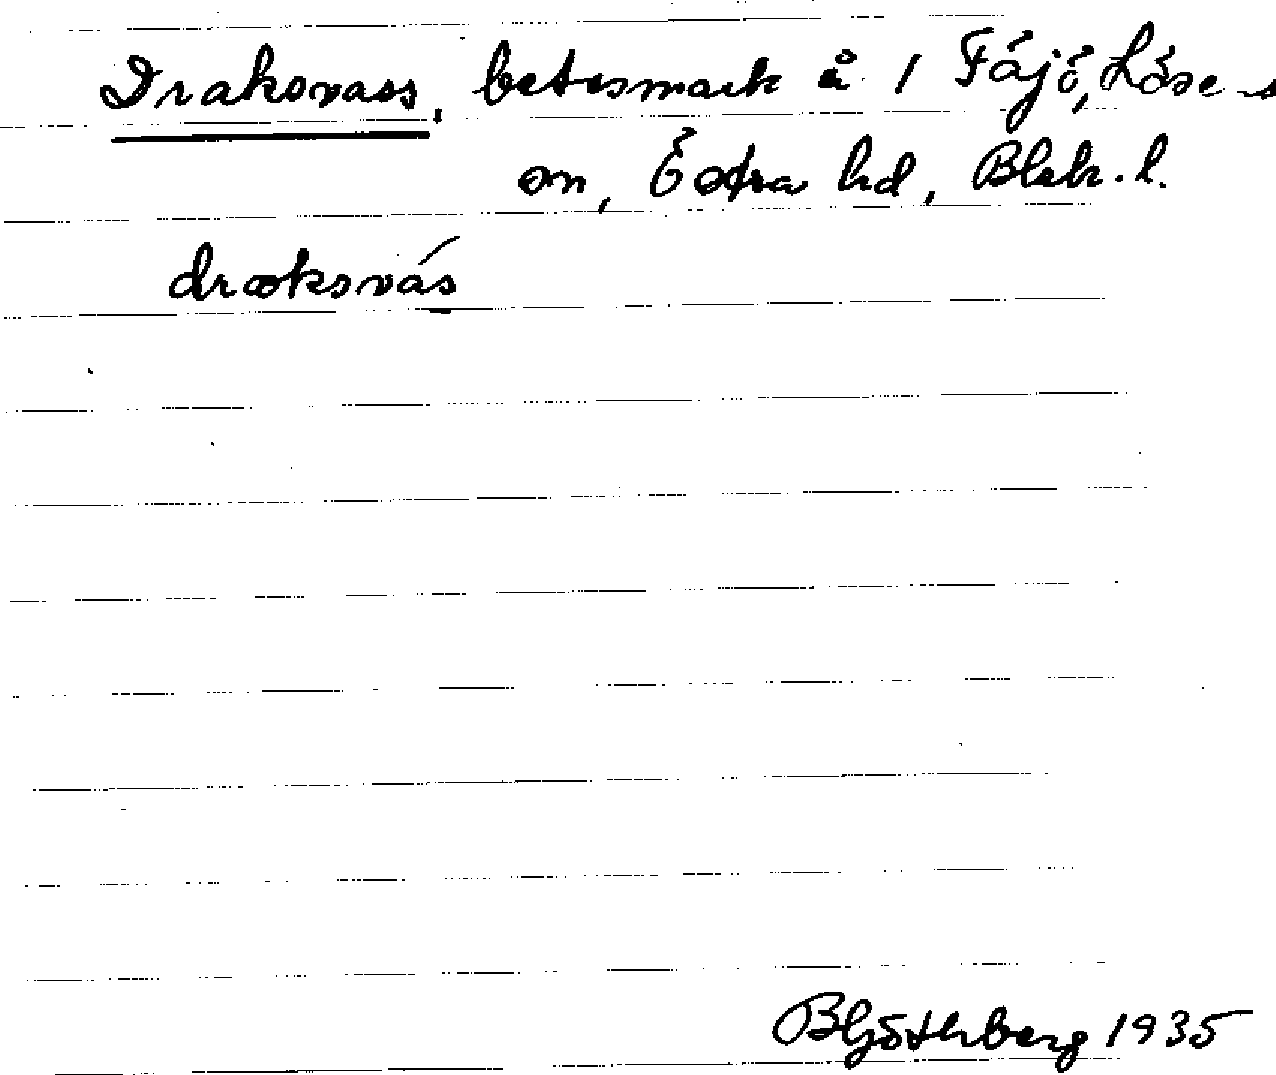 Draksvass, betesmark å 1 Fäjö, Lösen s
sn, Östra hd, Blek. l.
dræksvás
B Götherberg 1935